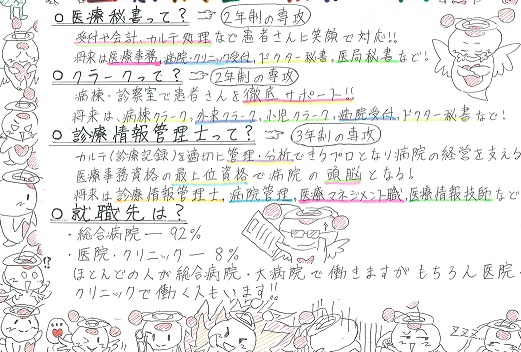 ○医療秘書って？ ☞ 2年制の専攻
受付や会計、カルテ処理など患者さんに笑顔で対応!!
将来は医療事務、病院・クリニック受付、ドクター秘書、医局秘書など！
○クラークって？ ☞ 2年制の専攻
病棟・診察室で患者さんを徹底サポート!!
将来は、病棟クラーク、外来クラーク、小児クラーク、病院受付、ドクター秘書など！
○診療情報管理士って？ ☞ 3年制の専攻
カルテ(診療記録)を適切に管理・分析できるプロとなり病院の経営を支える
医療事務資格の最上位資格で病院の頭脳となる！
将来は診療情報管理士、病院管理、医療マネジメント職、医療情報技師など
○就職先は？
・総合病院 ー 92%
・医院・クリニック ー 8%
ほとんどの人が総合病院・大病院で働きますがもちろん医院・
クリニックで働く人もいます!!
!?
zzz